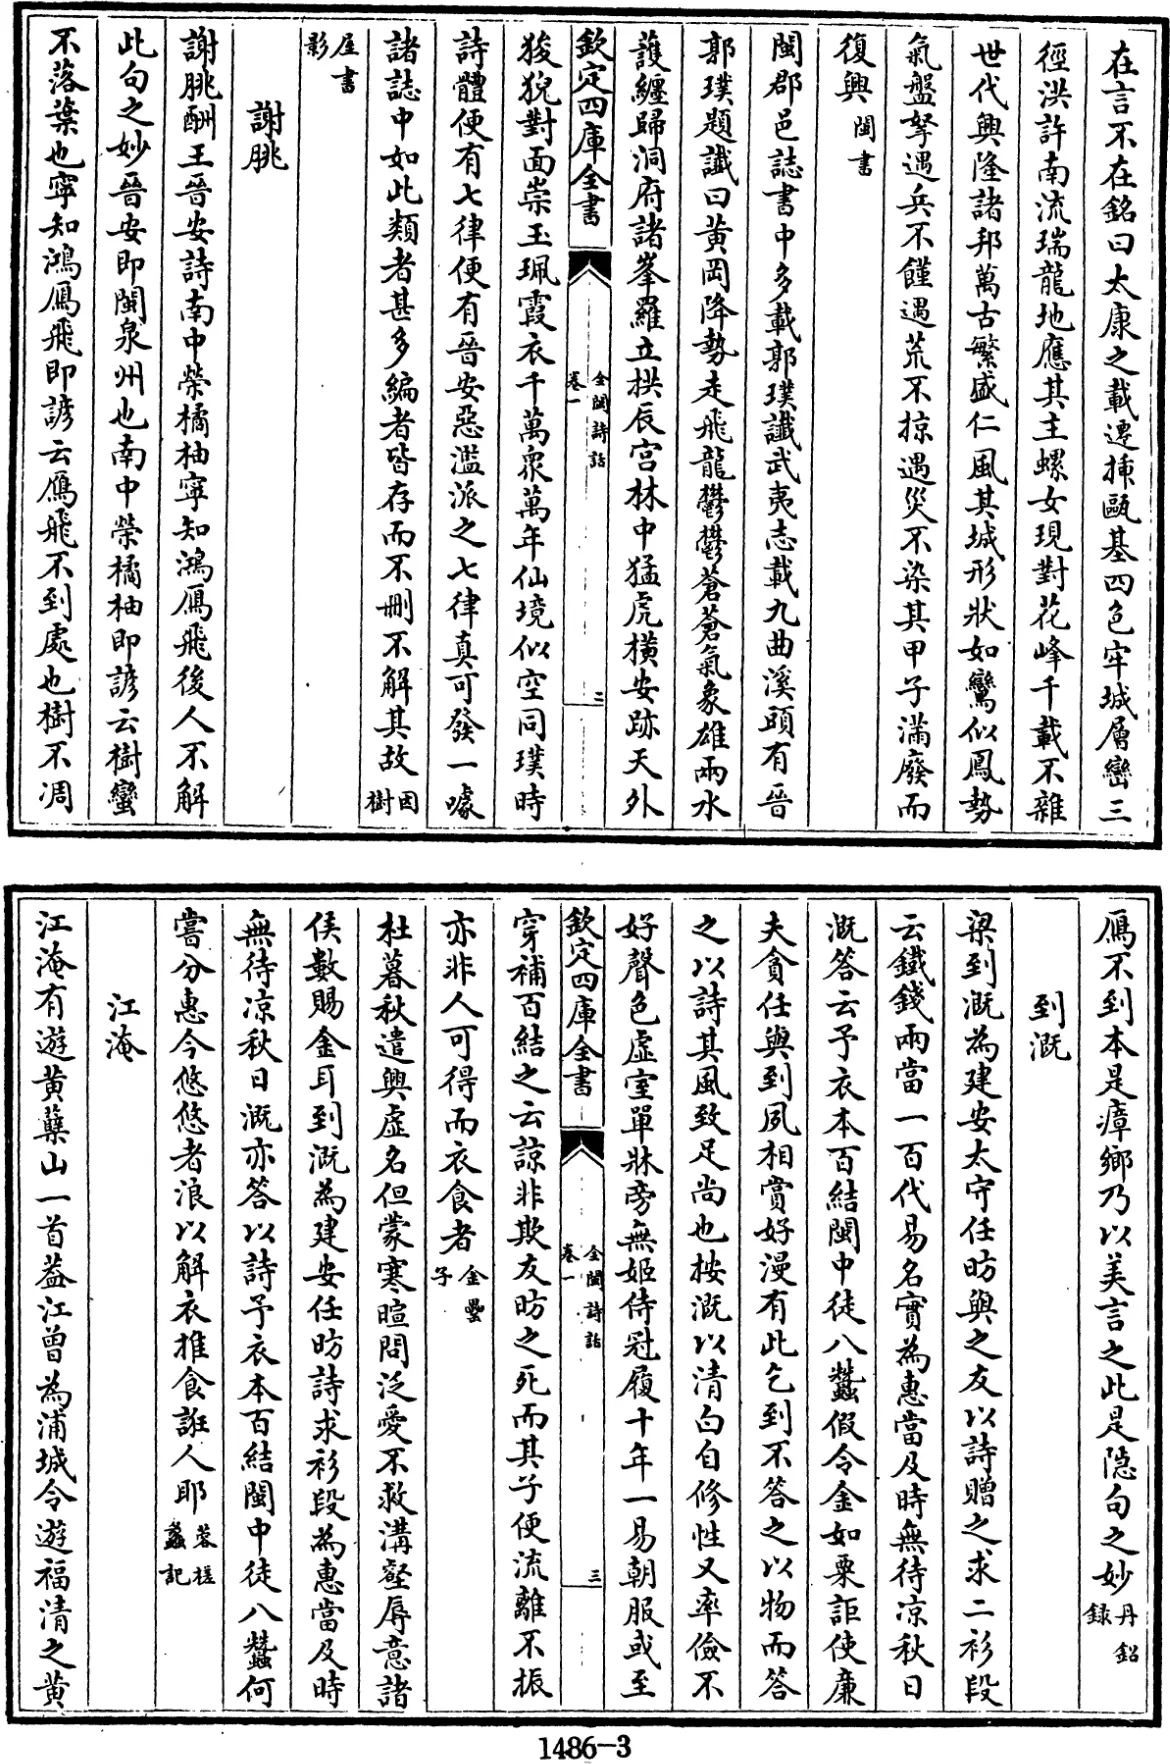 在言不在銘曰太康之載遷揷甌基四色牢城層巒三
徑洪許南流瑞龍地應其主螺女現對花峰千載不雜
世代興隆諸邦萬古繁盛仁風其城形狀如鸞似鳳勢
氣盤拏遇兵不饉遇荒不掠遇災不染其甲子滿廢而
復興閩書
閩郡邑誌書中多載郭璞讖武夷志載九曲溪頭有晉
郭璞題讖曰黃岡降勢走飛龍鬱鬱蒼蒼氣象雄兩水
護纏歸洞府諸峯羅立拱辰宮林中猛虎橫安跡天外
欽定四庫全書
全閩詩話
卷一
二
狻猊對面崇玉珮霞衣千萬衆萬年仙境似空同璞時
詩體便有七律便有晉安惡濫派之七律真可發一噱
諸誌中如此類者甚多編者皆存而不刪不解其故因樹
屋書影
謝朓
謝朓酬王晉安詩南中榮橘柚寧知鴻鴈飛後人不解
此句之妙晉安即閩泉州也南中榮橘柚即諺云樹蠻
不落葉也寧知鴻鴈飛即諺云鴈飛不到處也樹不凋
鴈不到本是瘴鄉乃以美言之此是隱句之妙丹鉛錄
到溉
梁到溉為建安太守任昉與之友以詩贈之求二衫段
云鐵錢兩當一百代易名實為惠當及時無待凉秋日
溉答云予衣本百結閩中徒八蠶假令金如粟詎使廉
夫貪任與到夙相賞好漫有此乞到不答之以物而答
之以詩其風致足尚也按溉以清白自修性又率儉不
好聲色虛室單牀旁無姬侍冠履十年一易朝服或至
欽定四庫全書
全閩詩話
卷一
三
穿補百結之云諒非欺友昉之死而其子便流離不振
亦非人可得而衣食者金罍子
杜暮秋遣興虛名但蒙寒暄問泛愛不救溝壑辱意諸
侯數賜金耳到溉為建安任昉詩求衫段為惠當及時
無待凉秋日溉亦答以詩予衣本百結閩中徒八蠶何
嘗分惠今悠悠者浪以解衣推食誑人耶蓉槎蠡記
江淹
江淹有遊黃蘗山一首葢江曾為浦城令遊福清之黃
1486-3